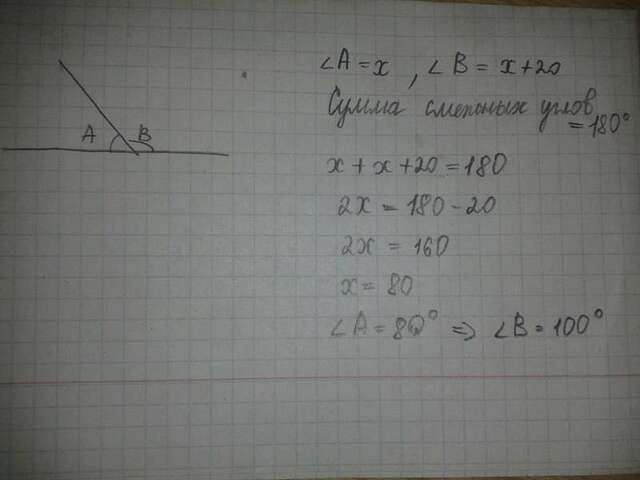 A B
∠A = x , ∠B = x+20
Сумма смежных углов
= 180°
x + x + 20 = 180
2x = 180 - 20
2x = 160
x = 80
∠A = 80° => ∠B = 100°